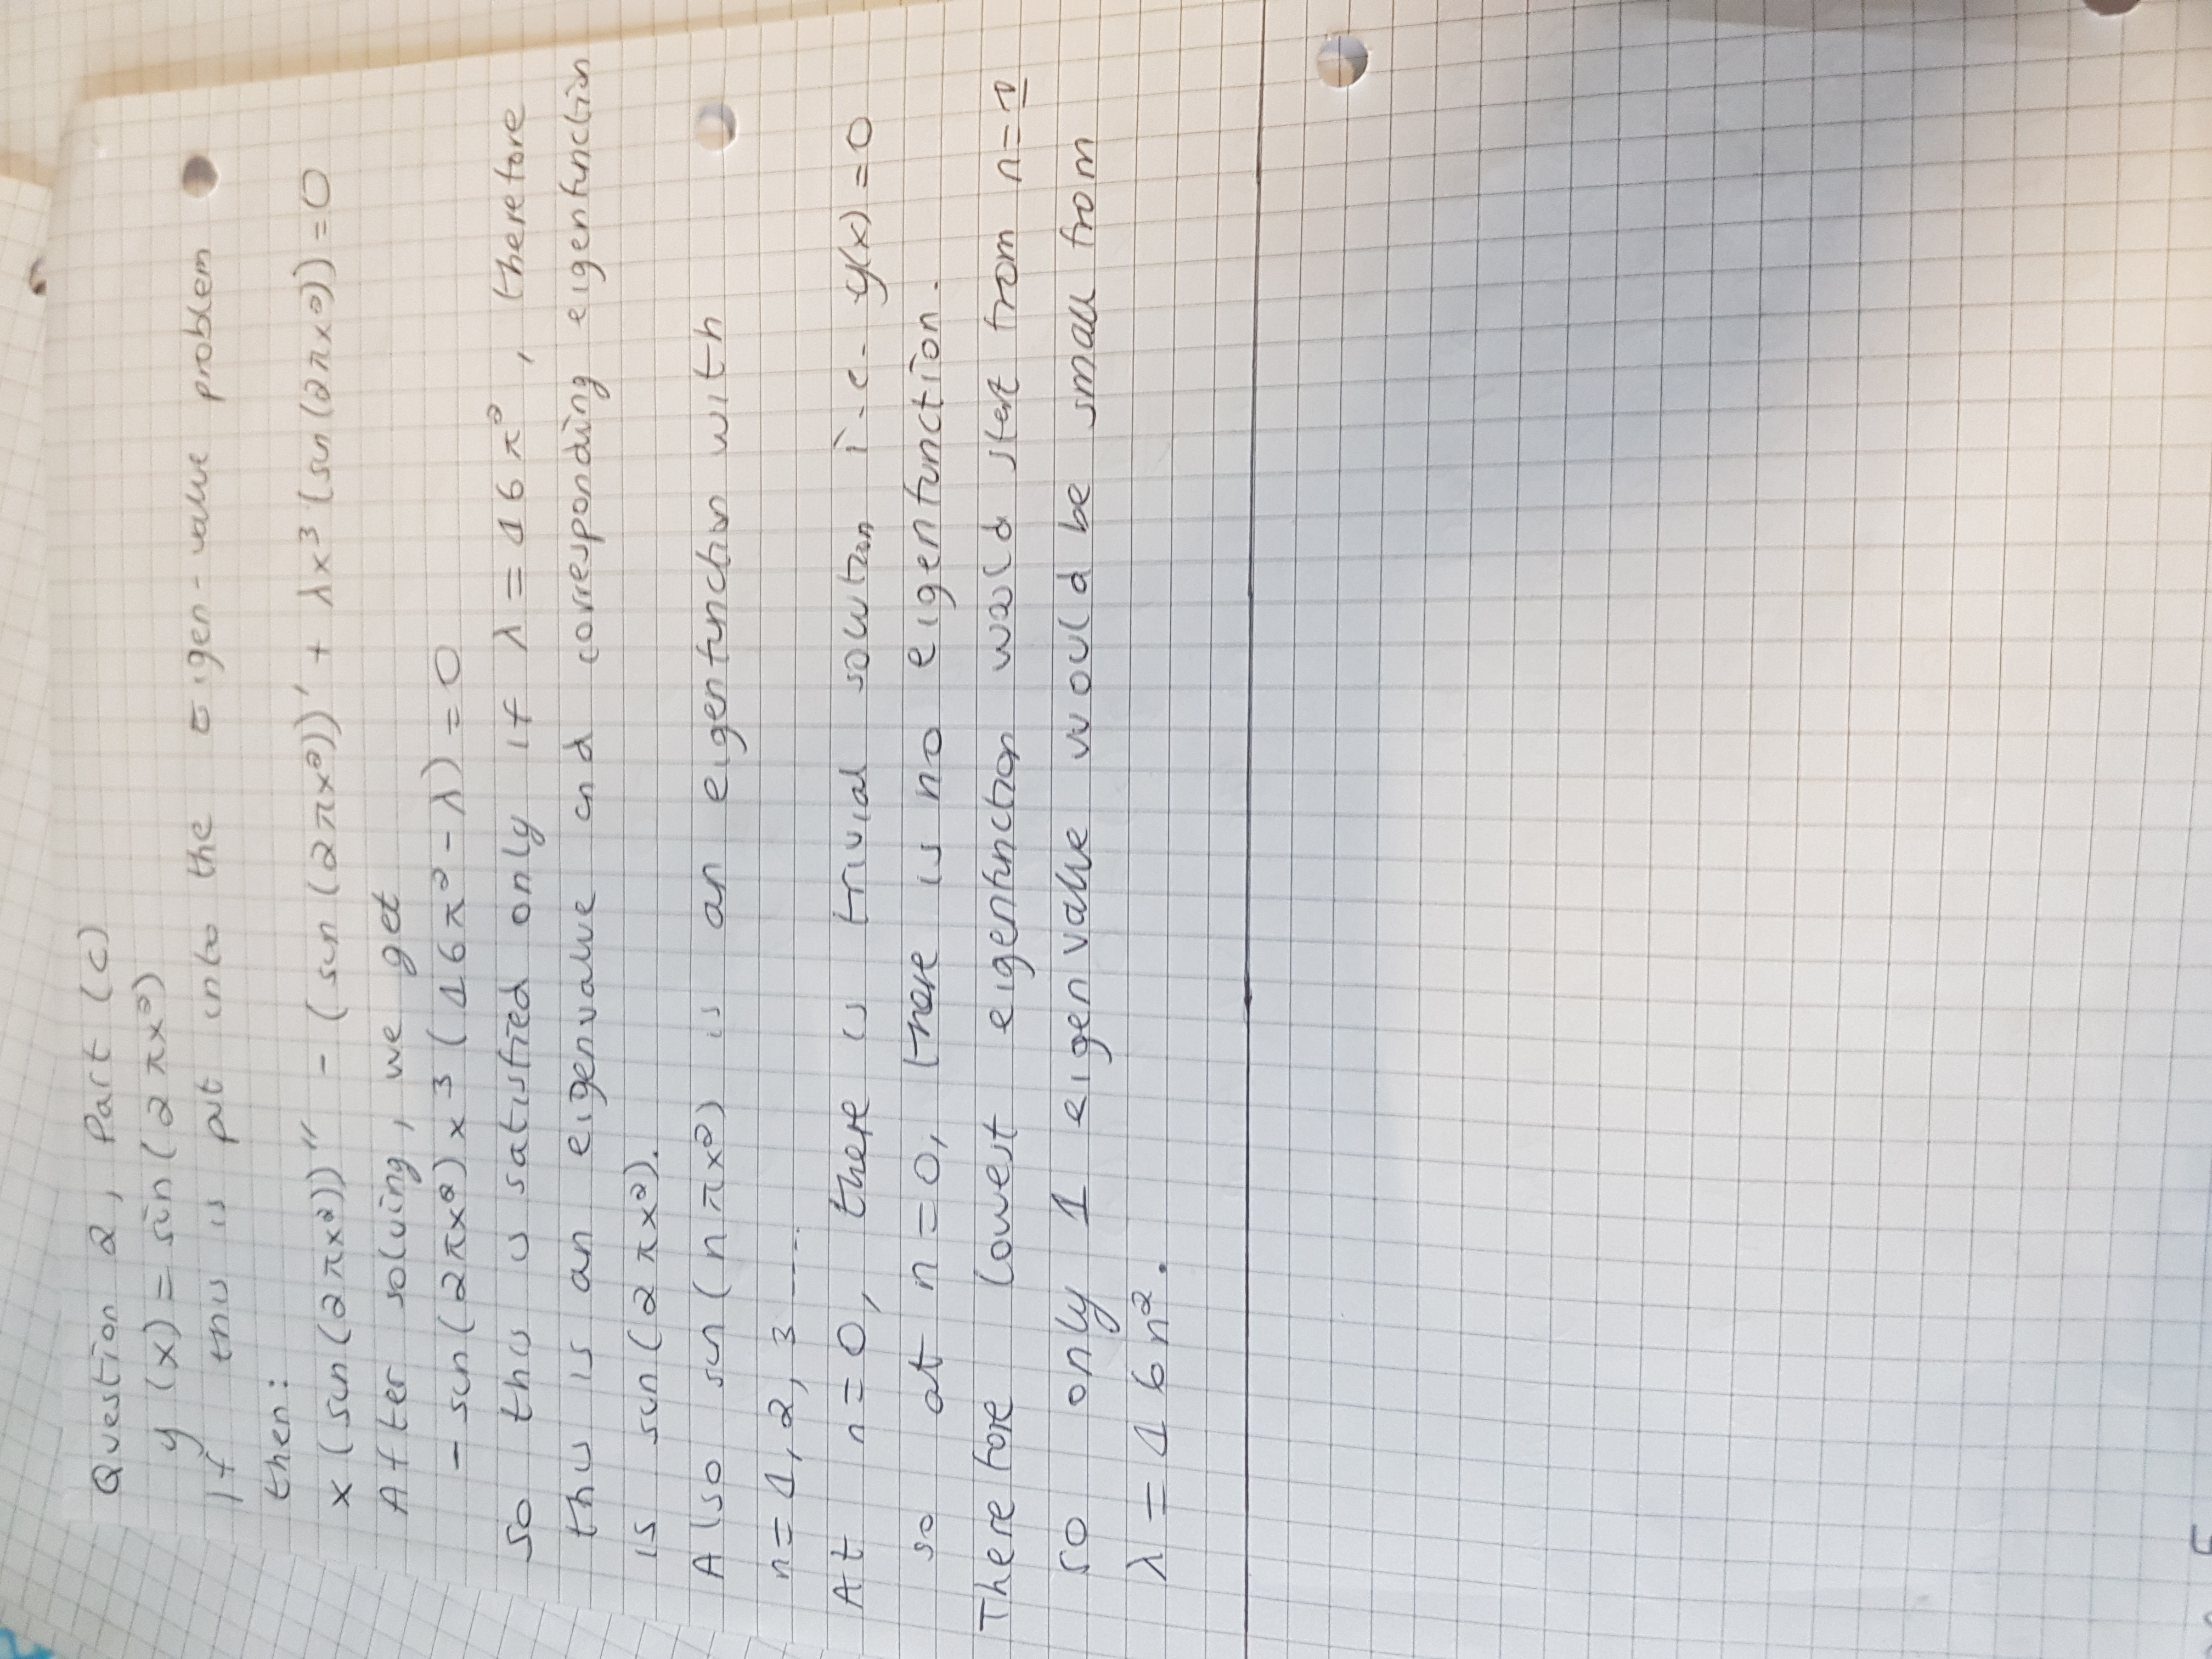 Question 2, Part (c)
y(x) = sin(2πx²)
If this is put into the Eigen-value problem
then:
x(sin(2πx²))'' - (sin(2πx²))' + λx³(sin(2πx²)) = 0
After solving, we get
- sin(2πx²)x³(16π² - λ) = 0
so this is satisfied only if λ = 16π², therefore
this is an eigenvalue and corresponding eigenfunction
is sin(2πx²).
Also sin(nπx²) is an eigenfunction with
n = 1, 2, 3 ----
At n = 0, there is trivial solution i.e. y(x) = 0
so at n = 0, there is no eigenfunction.
Therefore lowest eigenfunction would start from n = 1
so only 1 eigenvalue would be small from
λ = 16π².